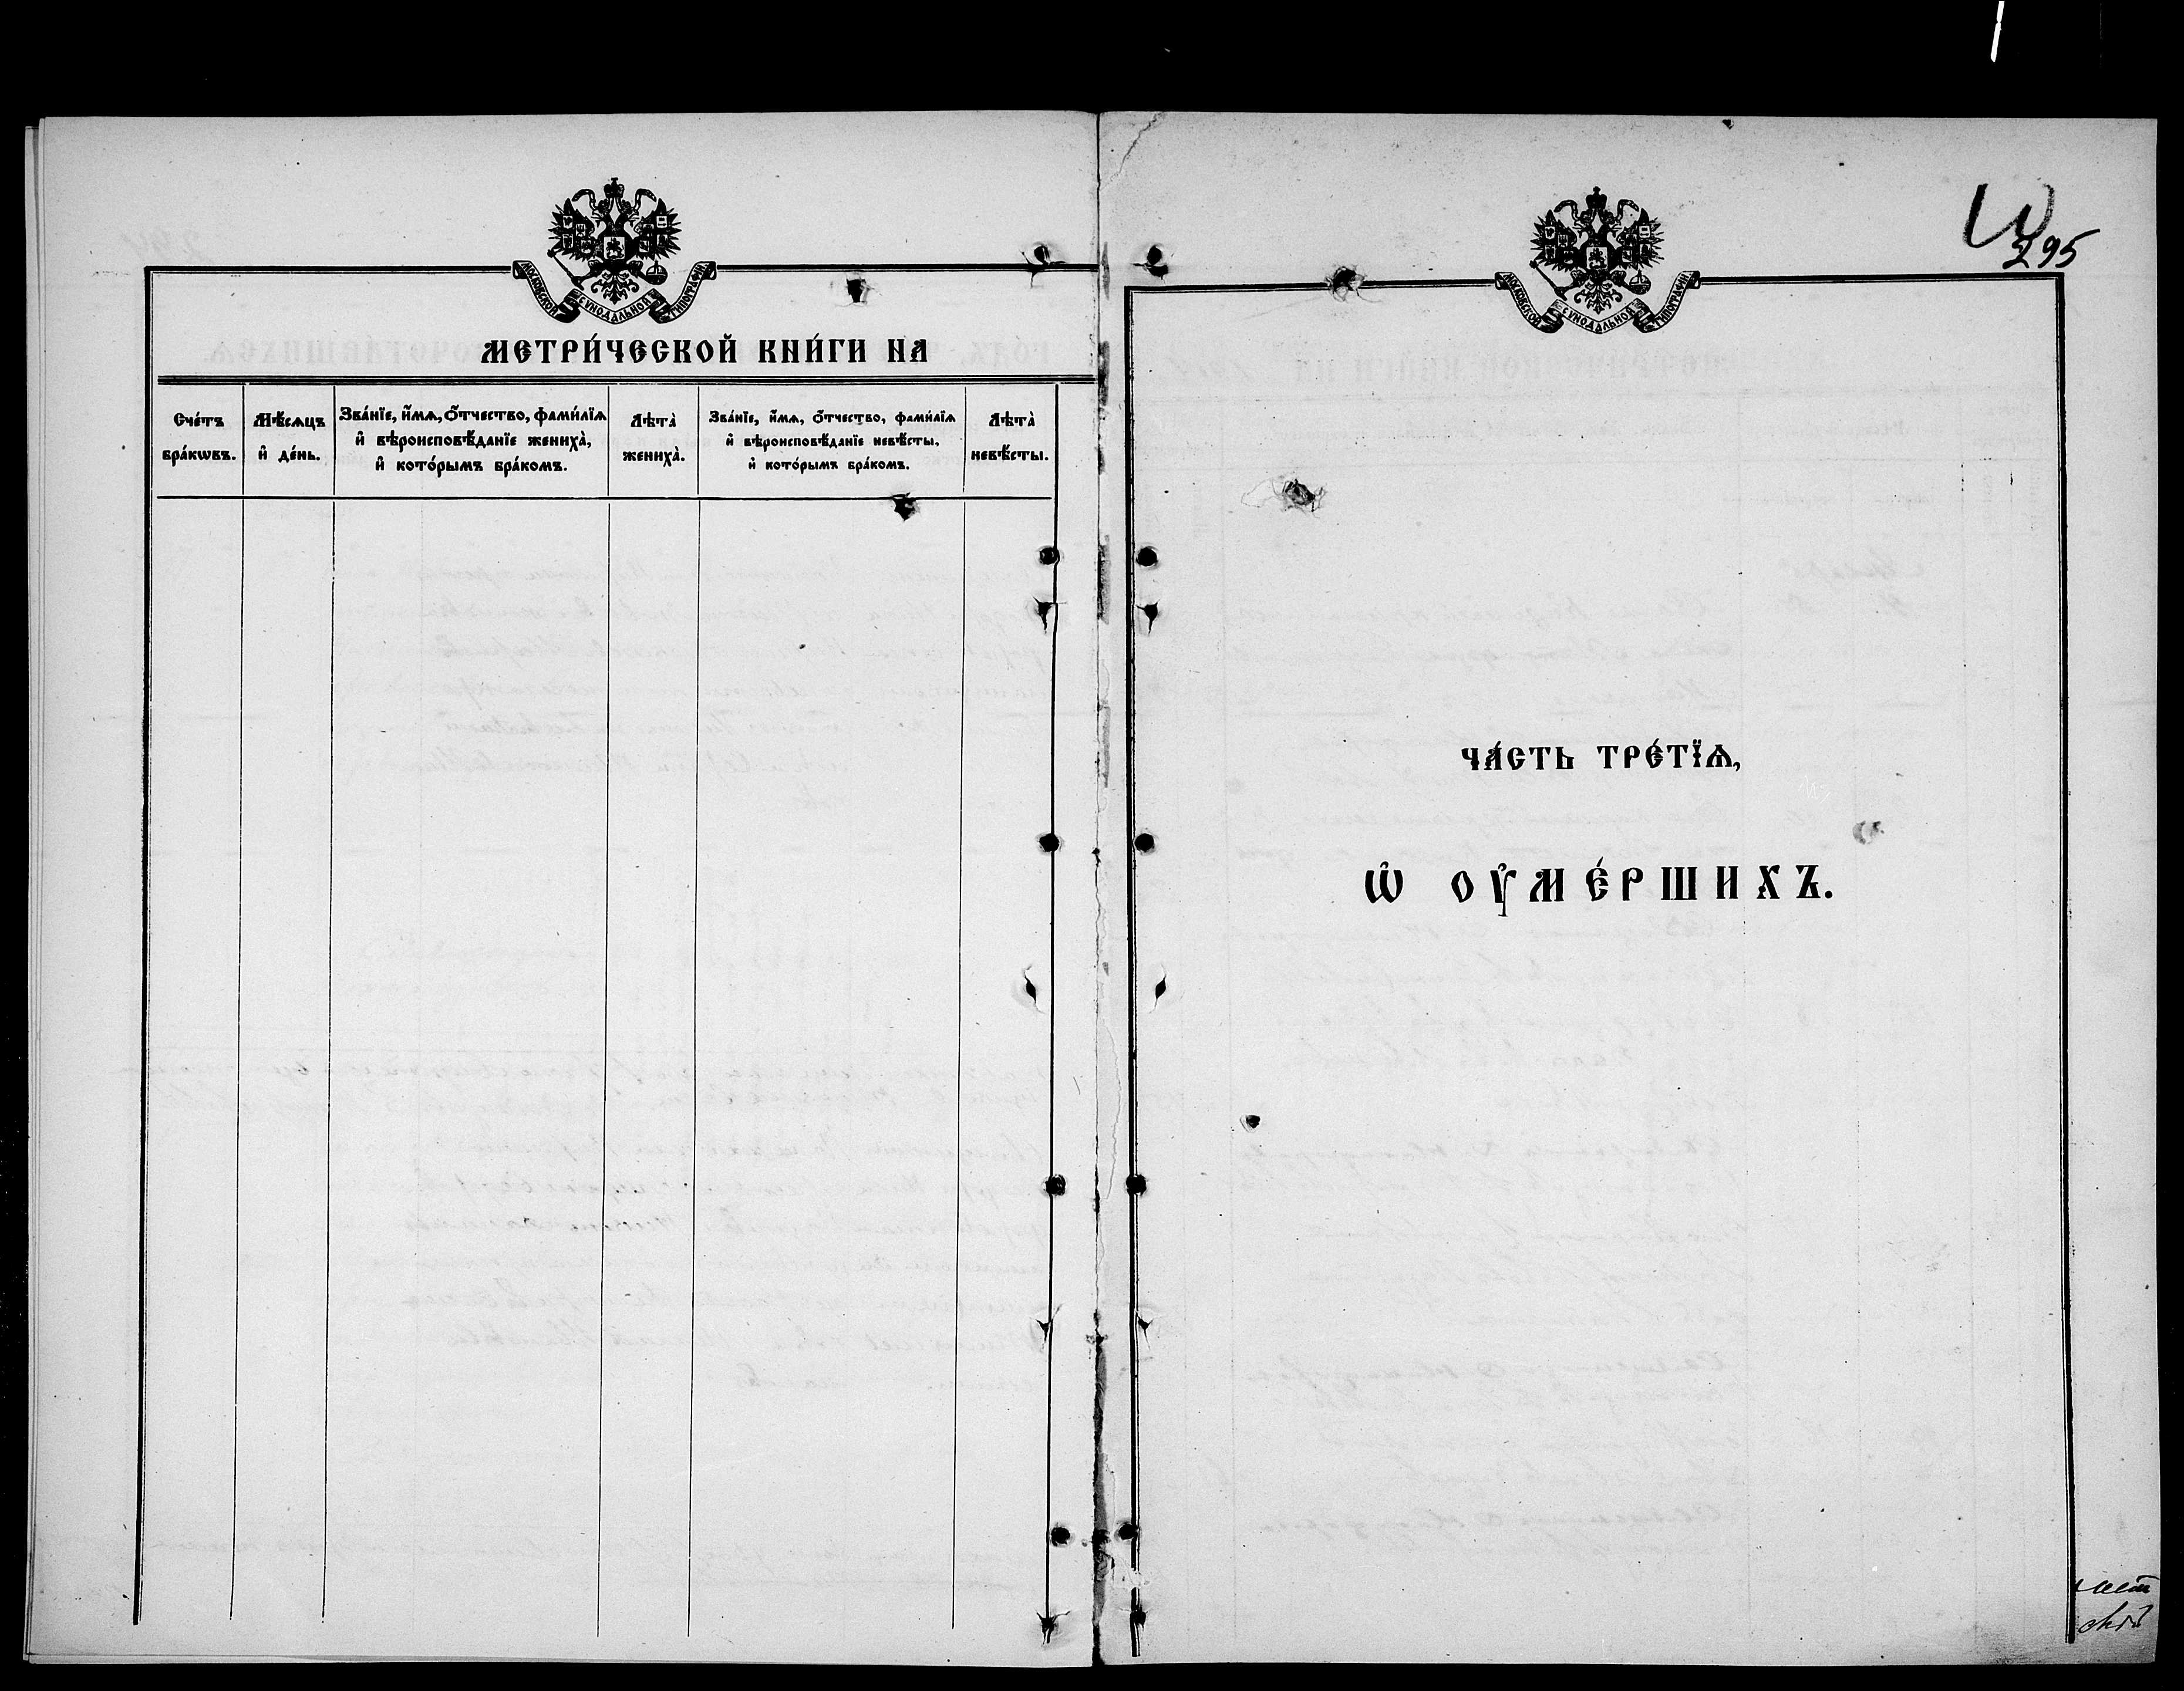 МОСКОВСКОЙ СѴНОДАЛЬНОЙ ТИПОГРАФІИ.
МЕТРИ́ЧЕСКОЙ КНИ́ГИ НА
Сче́тъ бра́кѡвъ.
Мѣ́сѧцъ и҆ де́нь.
Зва́нїе, и҆́мѧ, ѻ҆́тчество, фами́лїѧ
и҆ вѣроисповѣ́данїе жениха̀,
и҆ кото́рымъ бра́комъ.
Лѣта̀ жениха̀.
Зва́нїе, и҆́мѧ, ѻ҆́тчество, фами́лїѧ
и҆ вѣроисповѣ́данїе невѣ́сты,
и҆ кото́рымъ бра́комъ.
Лѣта̀ невѣ́сты.
295
МОСКОВСКОЙ СѴНОДАЛЬНОЙ ТИПОГРАФІИ.
ЧА́СТЬ ТРЕ́ТЇѦ,
Ѡ҆ ОУ҆МЕ́РШИХЪ.